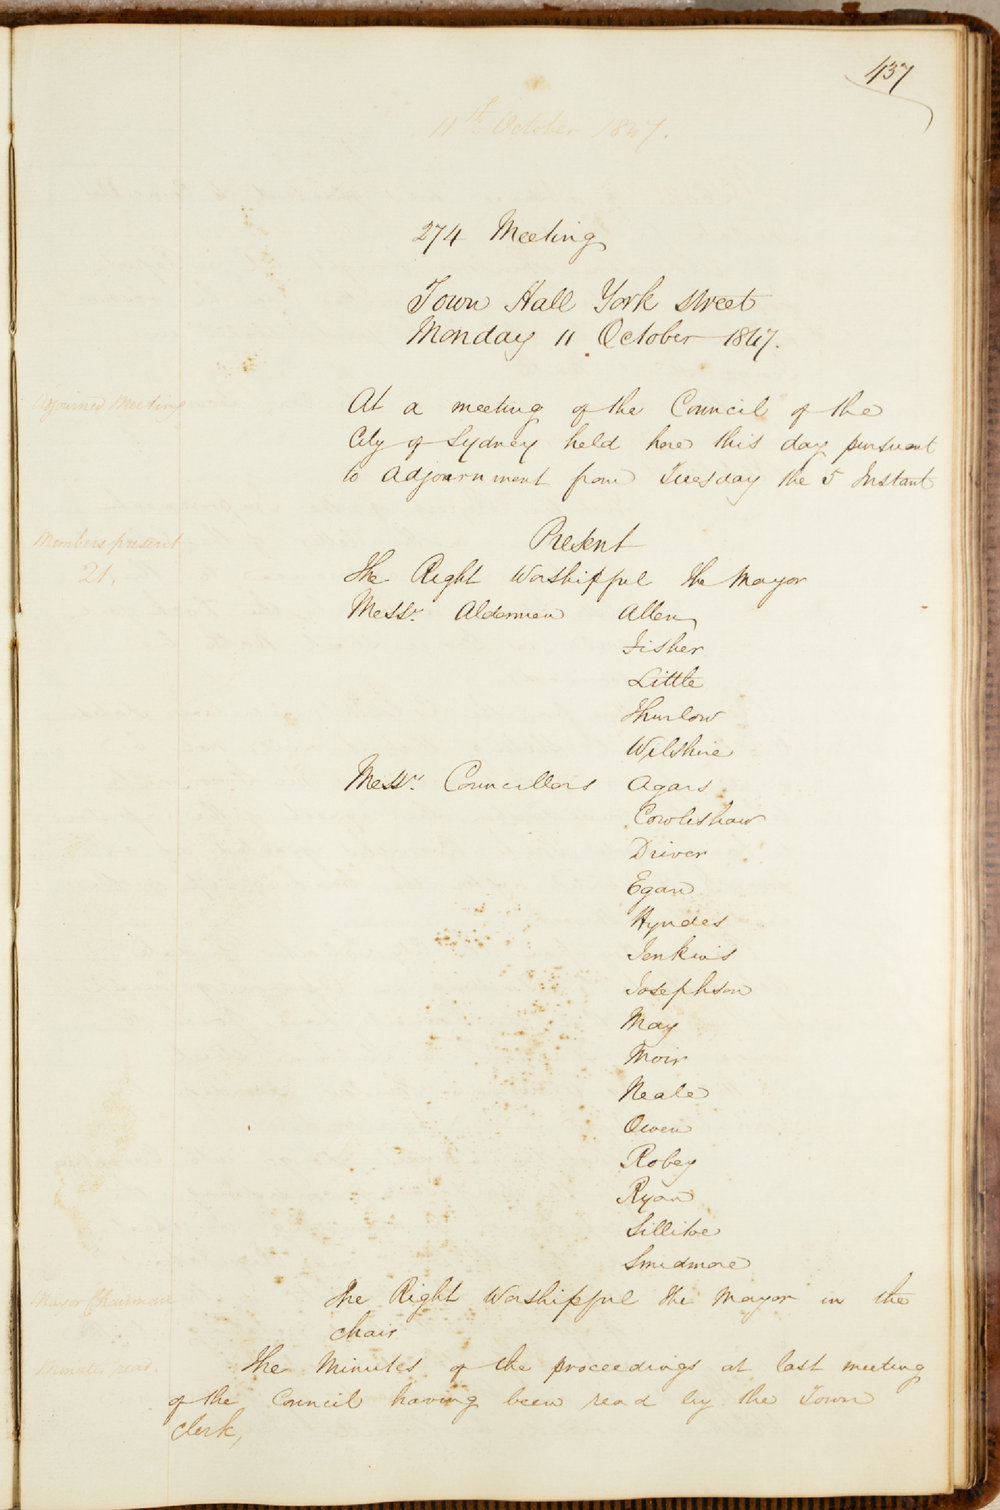 437
11th October 1847.
274 Meeting
Town Hall York street
Monday 11 October 1847.
Adjourned Meeting
At a meeting of the Council of the
City of Sydney held here this day pursuant
to adjournment from Tuesday the 5 Instant
Present
Members present
21.
The Right Worshipful the Mayor
Messrs. Aldermen Allen
Fisher
Little
Thurlow
Wilshire
Messrs. Councillors Agars
Cowlishaw
Driver
Egan
Hyndes
Jenkins
Josephson
May
Moir
Neale
Owen
Robey
Ryan
Sillitoe
Smidmore
Mayor Chairman
The Right Worshipful the Mayor in the
chair
Minutes read.
The Minutes of the proceedings at last meeting
of the Council having been read by the Town
Clerk,